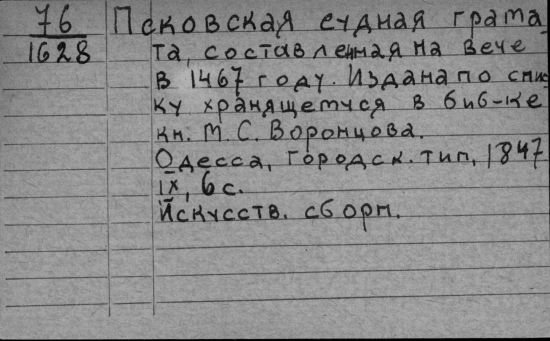 76
1628
Псковская судная грама-
та, составленная на вече
в 1467 году. Издана по спис-
ку хранящемуся в биб-ке
кн. М. С. Воронцова.
Одесса, городск. тип, 1847
IX, 6 с.
Искусств. сборн.